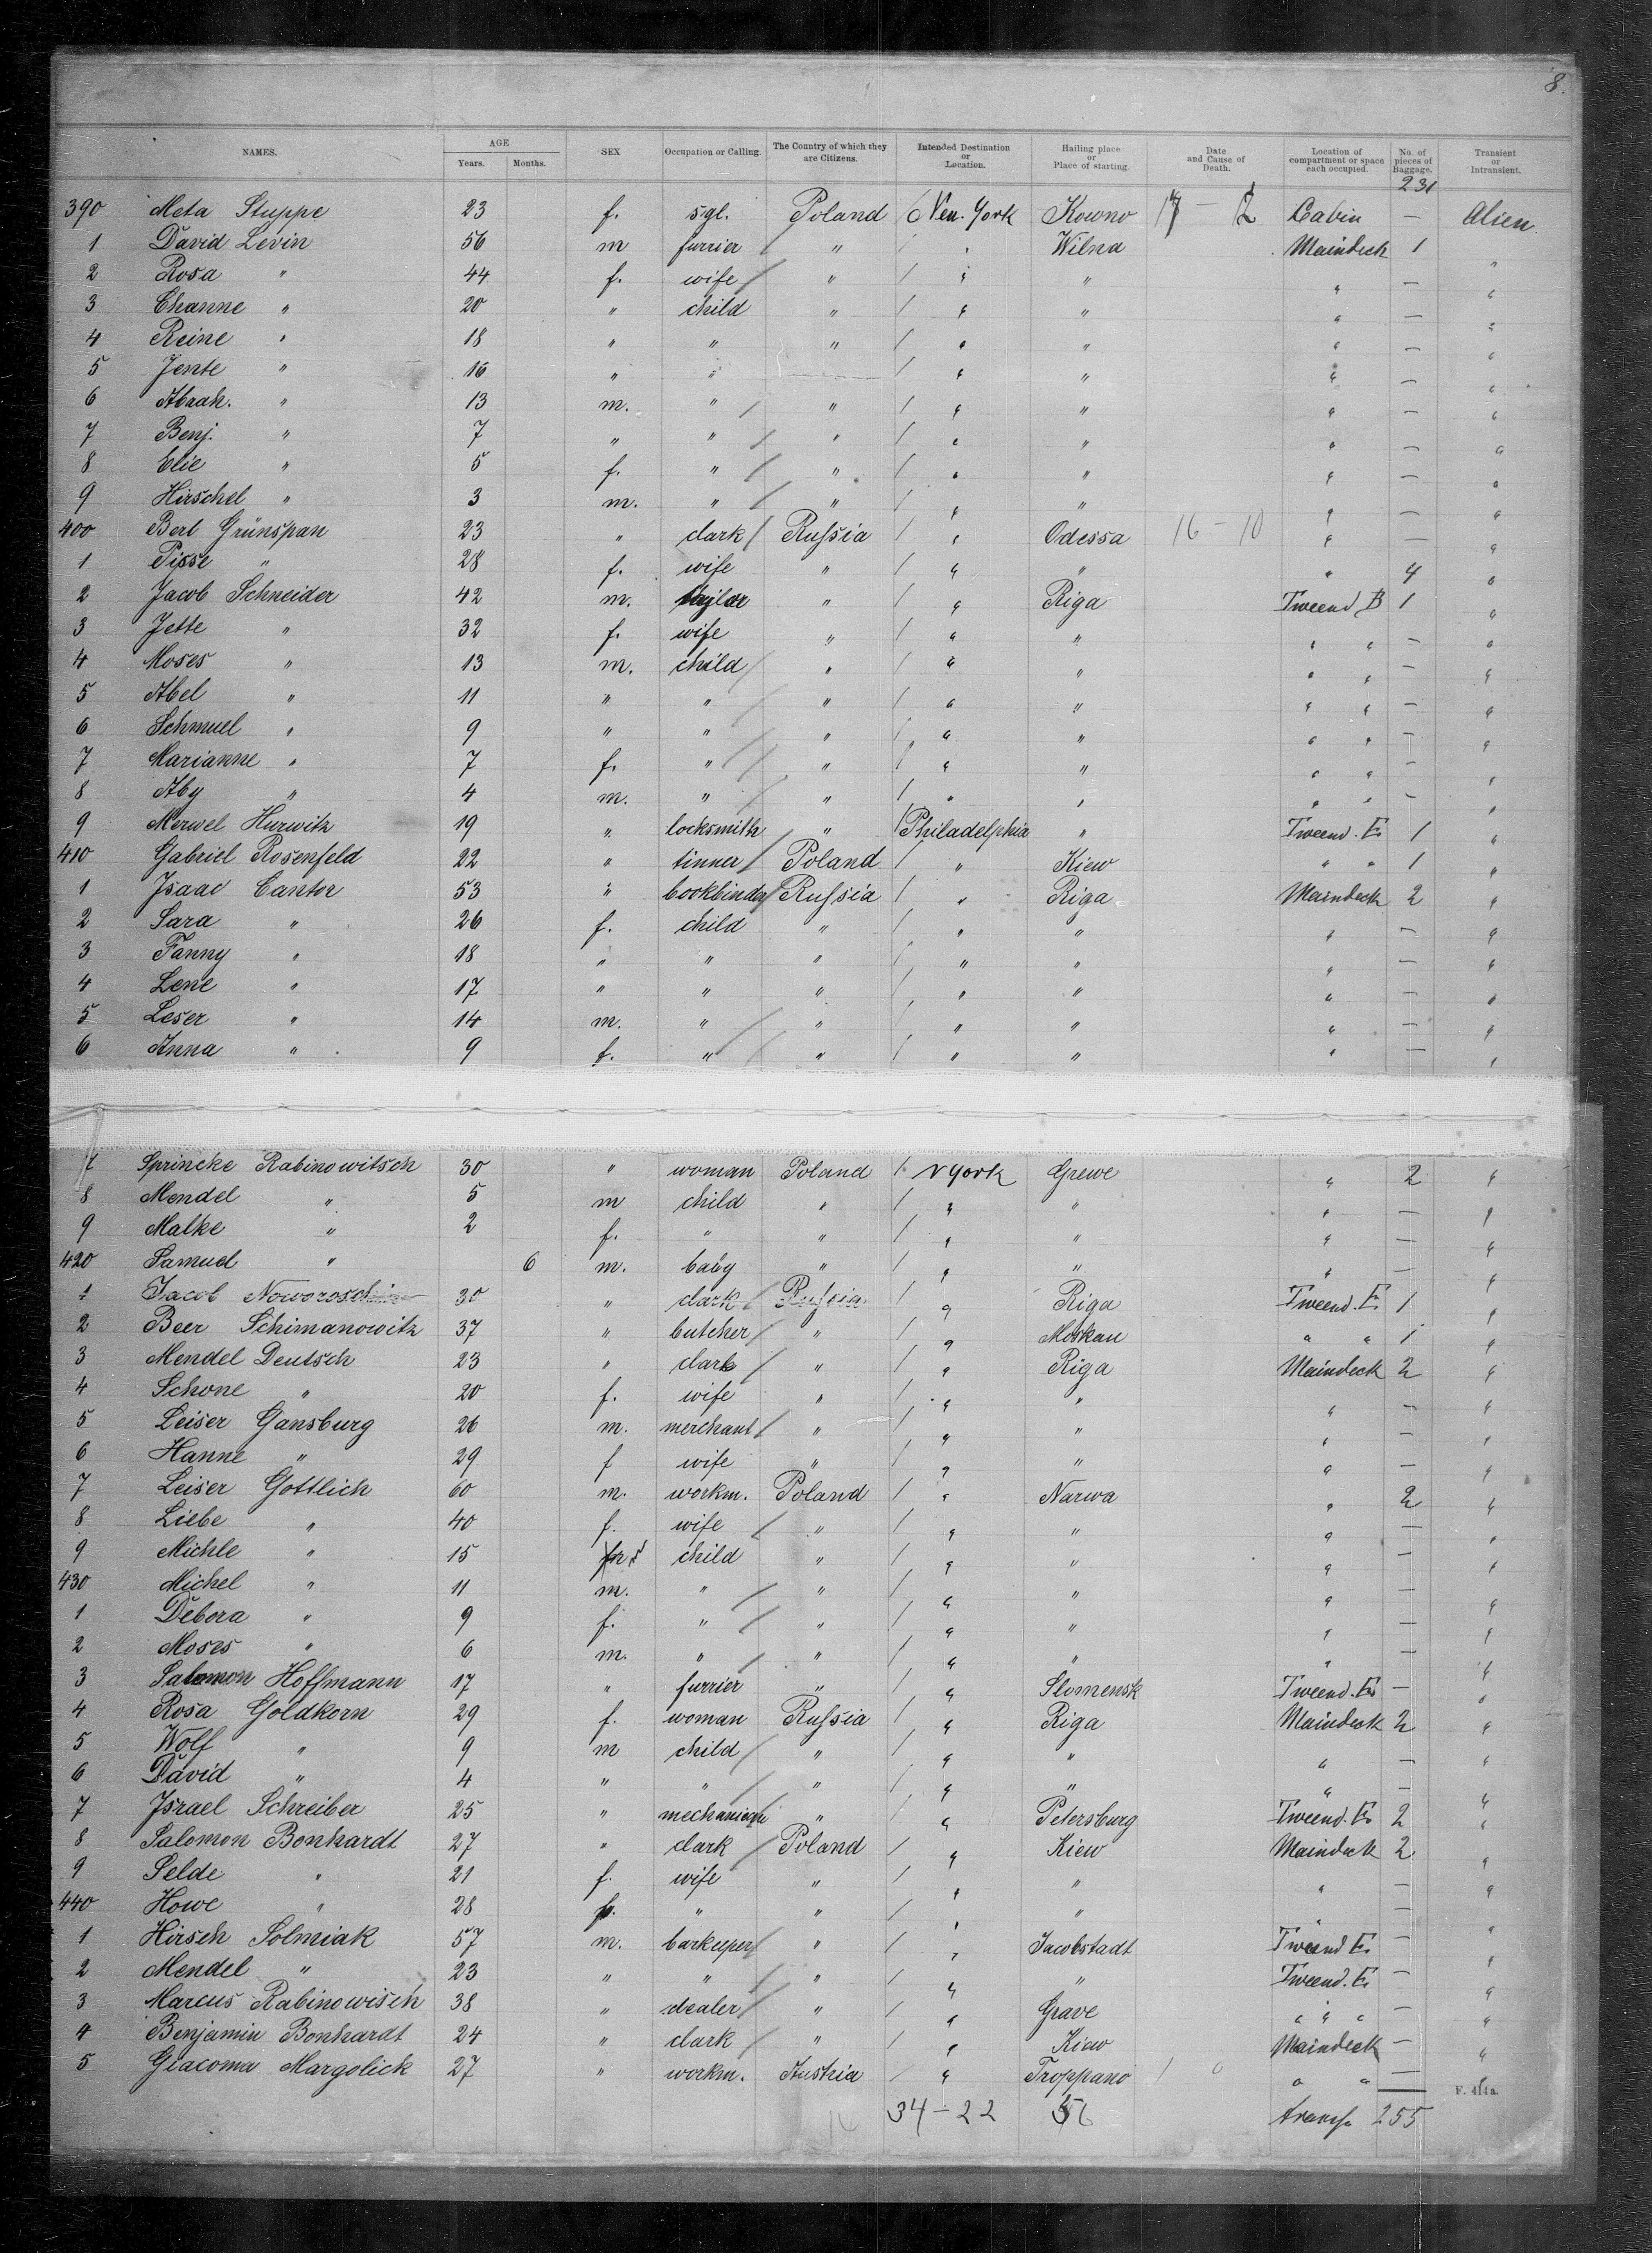 8.
NAMES. AGE Years. Months. SEX Occupation or Calling. The Country of which they are Citizens. Intended Destination or Location. Hailing place or Place of starting. Date and Cause of Death. Location of compartment or space each occupied. No. of pieces of Baggage. Transient or Intransient.
231
390 Meta Stuppe 23 f. sgl. Poland / New-York Kowno Cabin — Alien
1 David Levin 56 m furrier / " / " Wilna Maindeck 1 "
2 Rosa " 44 f. wife / " / " " " — "
3 Channe " 20 " child " / " " " — "
4 Reine " 18 " " " / " " " — "
5 Jente " 16 " " / " " " — "
6 Abrah. " 13 m. " / " / " " " — "
7 Benj. " 7 " " / " / " " " — "
8 Elie " 5 f. " / " / " " " — "
9 Hirschel " 3 m. " / " / " " " — "
400 Berl Grünspan 23 " clark / Russia / " Odessa 16 - 10 " — "
1 Pisse " 28 f. wife " / " " " 4 "
2 Jacob Schneider 42 m. taylor " / " Riga Tweend. B 1 "
3 Jette " 32 f. wife " / " " " " — "
4 Moses " 13 m. child / " / " " " " — "
5 Abel " 11 " " / " / " " " " — "
6 Schmuel " 9 " " / " / " " " " — "
7 Marianne " 7 f. " / " / " " " " — "
8 Aby " 4 m. " / " / " " " " — "
9 Merwel Hurwitz 19 " locksmith " / Philadelphia " Tweend. E. 1 "
410 Gabriel Rosenfeld 22 " tinner / Poland / " Kiew " " 1 "
1 Isaac Cantor 53 " bookbinder / Russia / " Riga Maindeck 2 "
2 Sara " 26 f. child " / " " " — "
3 Fanny " 18 " " " / " " " — "
4 Lene " 17 " " " / " " " — "
5 Leser " 14 m. " / " / " " " — "
6 Anna " 9 f. " / " / " " " — "
7 Sprincke Rabinowitsch 30 " woman Poland / N York Grewe " 2 "
8 Mendel " 5 m child " / " " " — "
9 Malke " 2 f. " " / " " " — "
420 Samuel " 6 m. baby " / " " " — "
1 Jacob 30 " clark / Russia / " Riga Tweend. E. 1 "
2 Beer Schimanowitz 37 " butcher / " / " Moskau " " 1 "
3 Mendel Deutsch 23 " clark / " / " Riga Maindeck 2 "
4 Schone " 20 f. wife " / " " " — "
5 Leiser Gansburg 26 m. merchant / " / " " " — "
6 Hanne " 29 f wife " / " " " — "
7 Leiser Gottlich 60 m. workm. Poland / " Narwa " 2 "
8 Liebe " 40 f. wife / " / " " " — "
9 Michle " 15 f child " / " " " — "
430 Michel " 11 m. " / " / " " " — "
1 Debora " 9 f. " / " / " " " — "
2 Moses " 6 m. " / " / " " " — "
3 Salomon Hoffmann 17 " furrier " / " Slomensk Tweend. E. — "
4 Rosa Goldkorn 29 f. woman Russia / " Riga Maindeck 2 "
5 Wolf " 9 m child / " / " " " — "
6 David " 4 " " / " / " " " — "
7 Israel Schreiber 25 " mechanican " / " Petersburg Tweend. E. 2 "
8 Salomon Bonhardt 27 " clark / Poland / " Kiew Maindeck 2 "
9 Selde " 21 f. wife " / " " " — "
440 Howe " 28 f. " " / " " " — "
1 Hirsch Solmiak 57 m. barkeeper / " / " Jacobstadt Tweend E. — "
2 Mendel " 23 " " / " / " " Tweend. E. — "
3 Marcus Rabinowisch 38 " dealer / " / " Grave " " " — "
4 Benjamin Bonhardt 24 " clark / " / " Kiew Maindeck — "
5 Giacoma Margolick 27 " workm. Austria / " Troppano 1 0 " " — "
F. 414a.
34 - 22 56 transf. 255